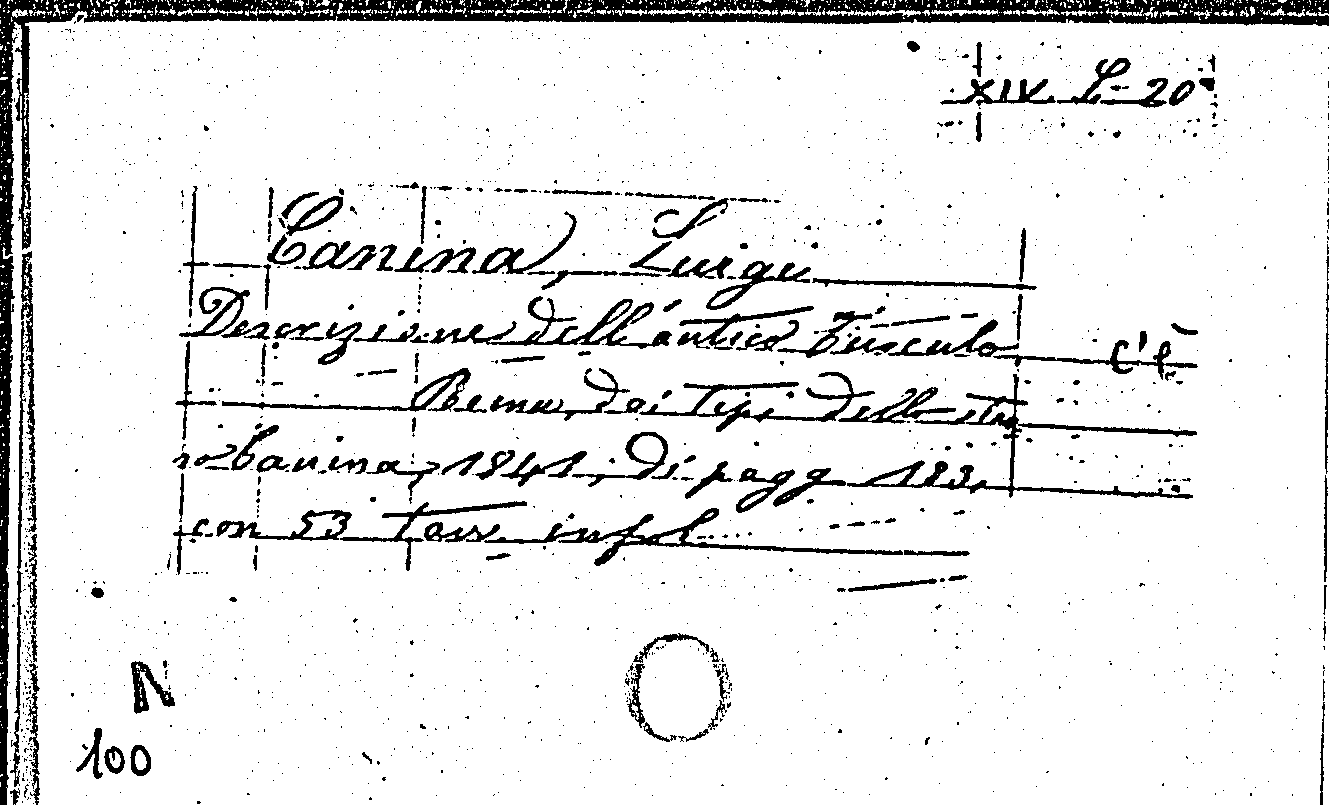 XIV. L-20
Canina, Luigi
Descrizione dell'antico Tusculo. c'è
Roma, dai tipi dello stes
so Canina, 1841, di pagg. 183,
con 53 tavv. in fol.
N
100